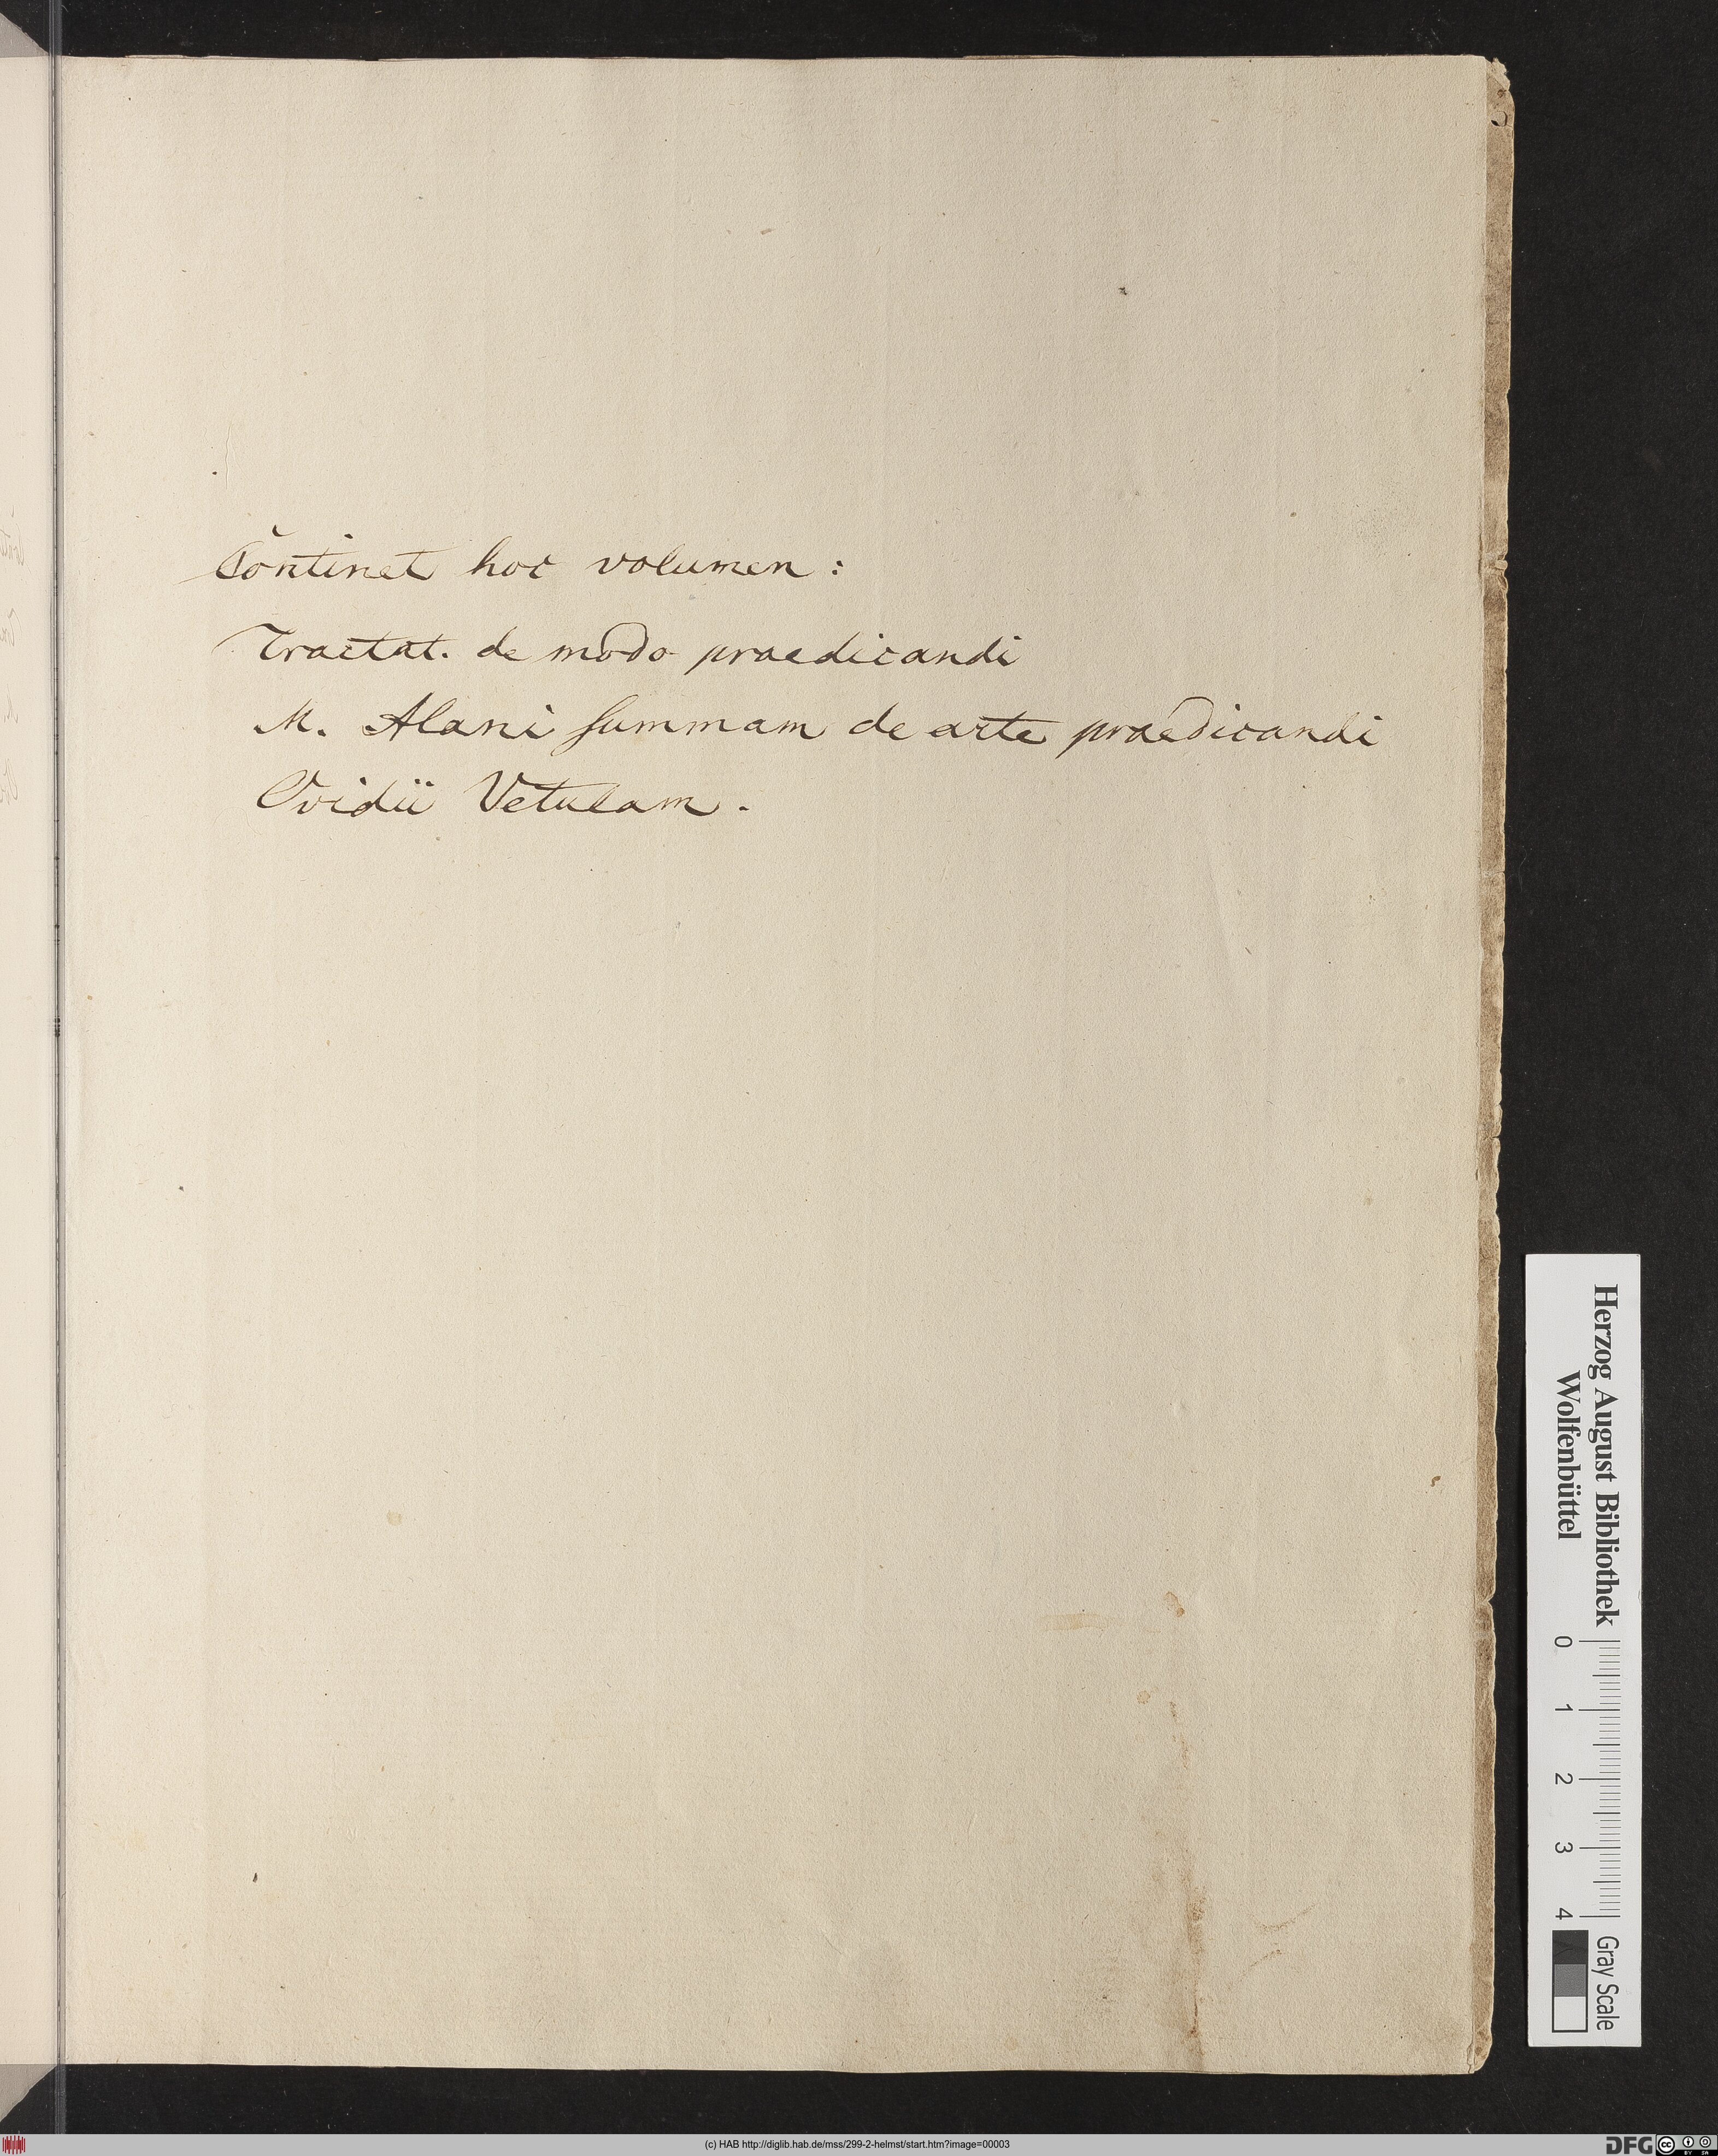 Continet hoc volumen:
Tractat. de modo praedicandi
M. Alani summam de arte praedicandi
Ovidii Vetulam.
Herzog August Bibliothek
Wolfenbüttel
0 1 2 3 4
Gray Scale
(c) HAB http://diglib.hab.de/mss/299-2-helmst/start.htm?image=00003
DFG